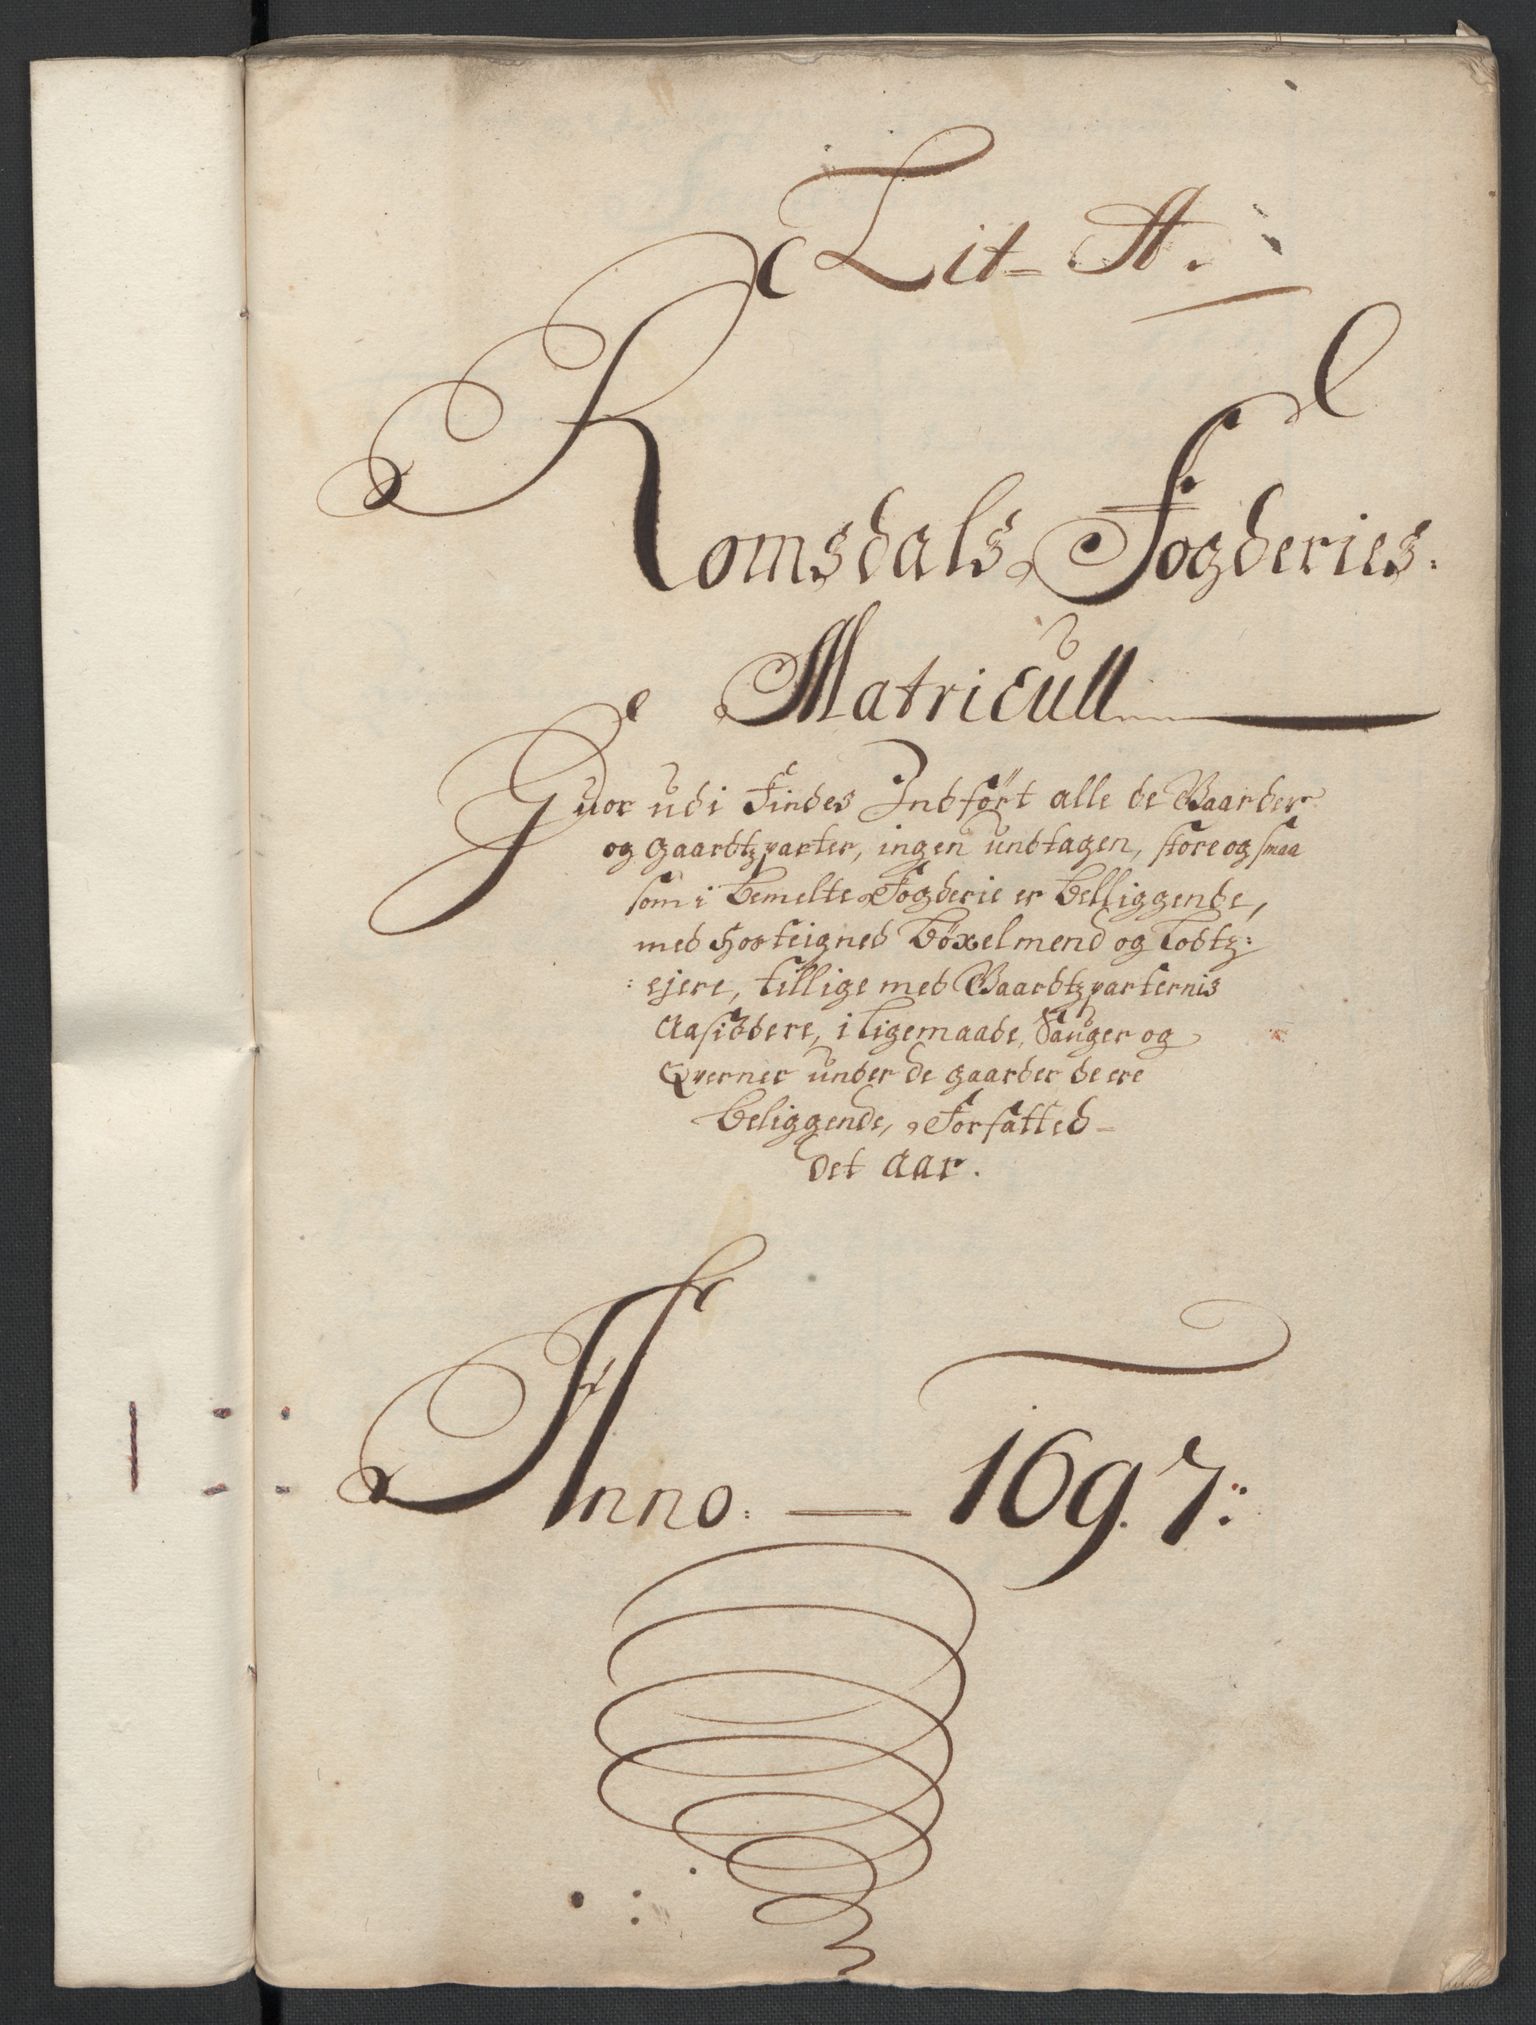 Lit= A.
Romsdals Fogderies:
Matricull
Huor udi Findes Indført alle de Gaarder
og gaardtzparter, ingen undtagen, store og smaa
som i bemelte Fogderie er belliggende,
med hosteigned bøxelmend og Lodtz:
: ejere, tillige med Gaardtzparternis
Aasiddere, i ligemaade, Sauger og
Qverner under de gaarder de ere
beliggende, Forfatted
det aar.
Anno: — 1697: